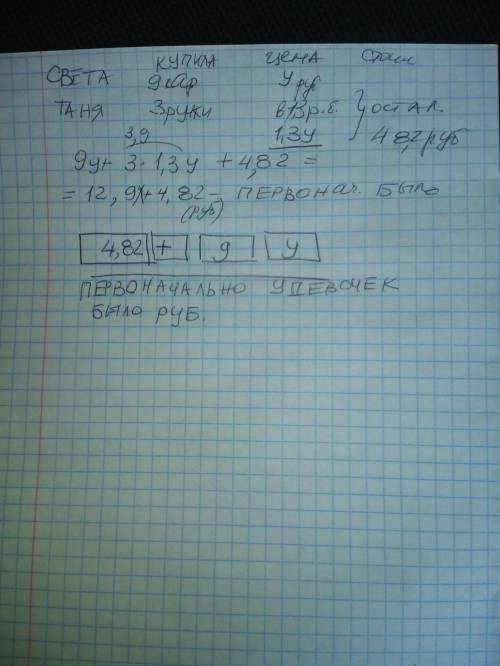 КУПИЛА ЦЕНА
СВЕТА 9 кар У руб
ТАНЯ 3 ручки в 1,3 р. б. } остал.
3,9 1,3у 4,82 руб
9у + 3·1,3у + 4,82 =
= 12,9у + 4,82 – ПЕРВОНАЧ. БЫЛО
(руб)
4,82 + 9 У
ПЕРВОНАЧАЛЬНО У ДЕВОЧЕК
БЫЛО РУБ.